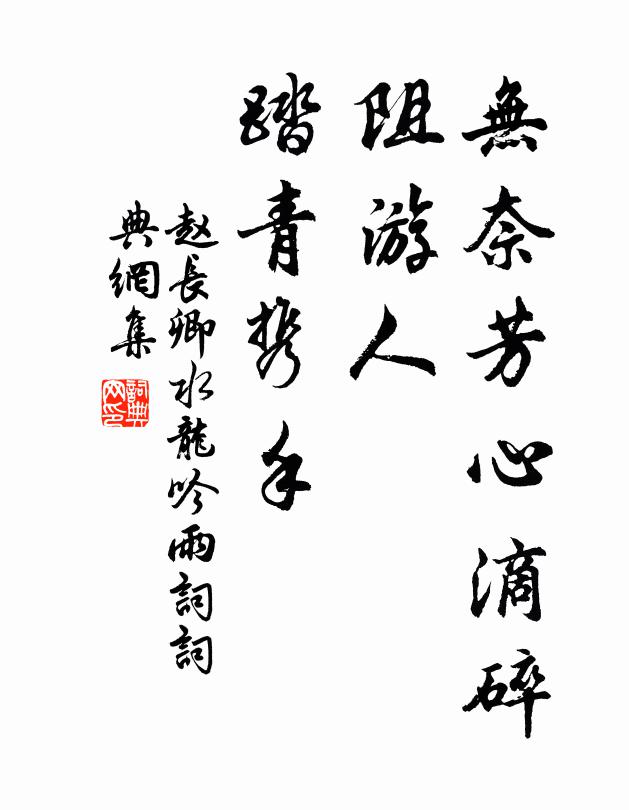 無奈芳心滴碎
阻游人
踏青携手
赵長卿水龍吟雨詞詞
典網集
詞典
网印